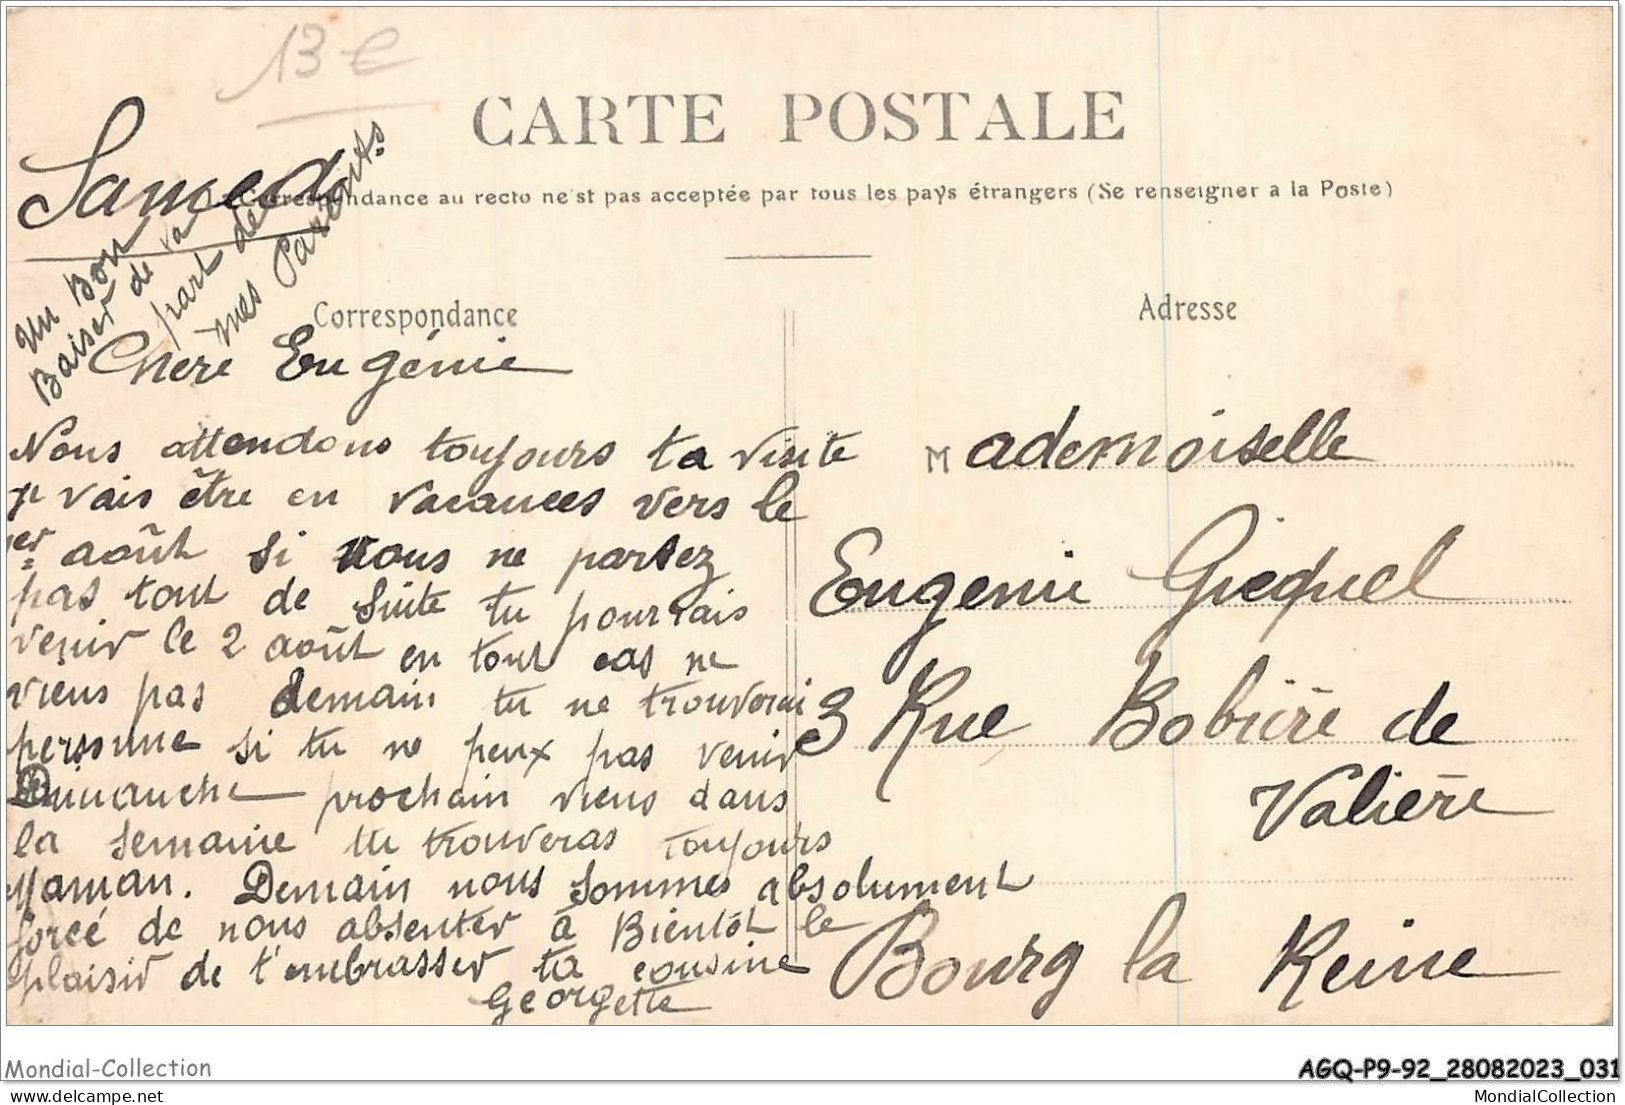 13 €
CARTE POSTALE
Samedi
Correspondance au recto n'est pas acceptée par tous les pays étrangers (Se renseigner a la Poste)
Un Bon
Baiser de la
part de
mes Parents
Correspondance
Adresse
Chere Eugénie
Nous attendons toujours ta visite
je vais être en vacances vers le
1er août si vous ne partez
pas tout de suite tu pourrais
venir le 2 août en tout cas ne
viens pas demain tu ne trouverai
personne si tu ne peux pas venir
Dimanche prochain viens dans
la semaine tu trouveras toujours
Maman. Demain nous sommes absolument
forcé de nous absenter à Bientôt le
plaisir de t'embrasser ta cousine
Georgette
Mademoiselle
Eugenie Gicquel
3 Rue Bobière de
Valière
Bourg la Reine
Mondial-Collection
AGQ-P9-92_28082023_031
www.delcampe.net
MondialCollection